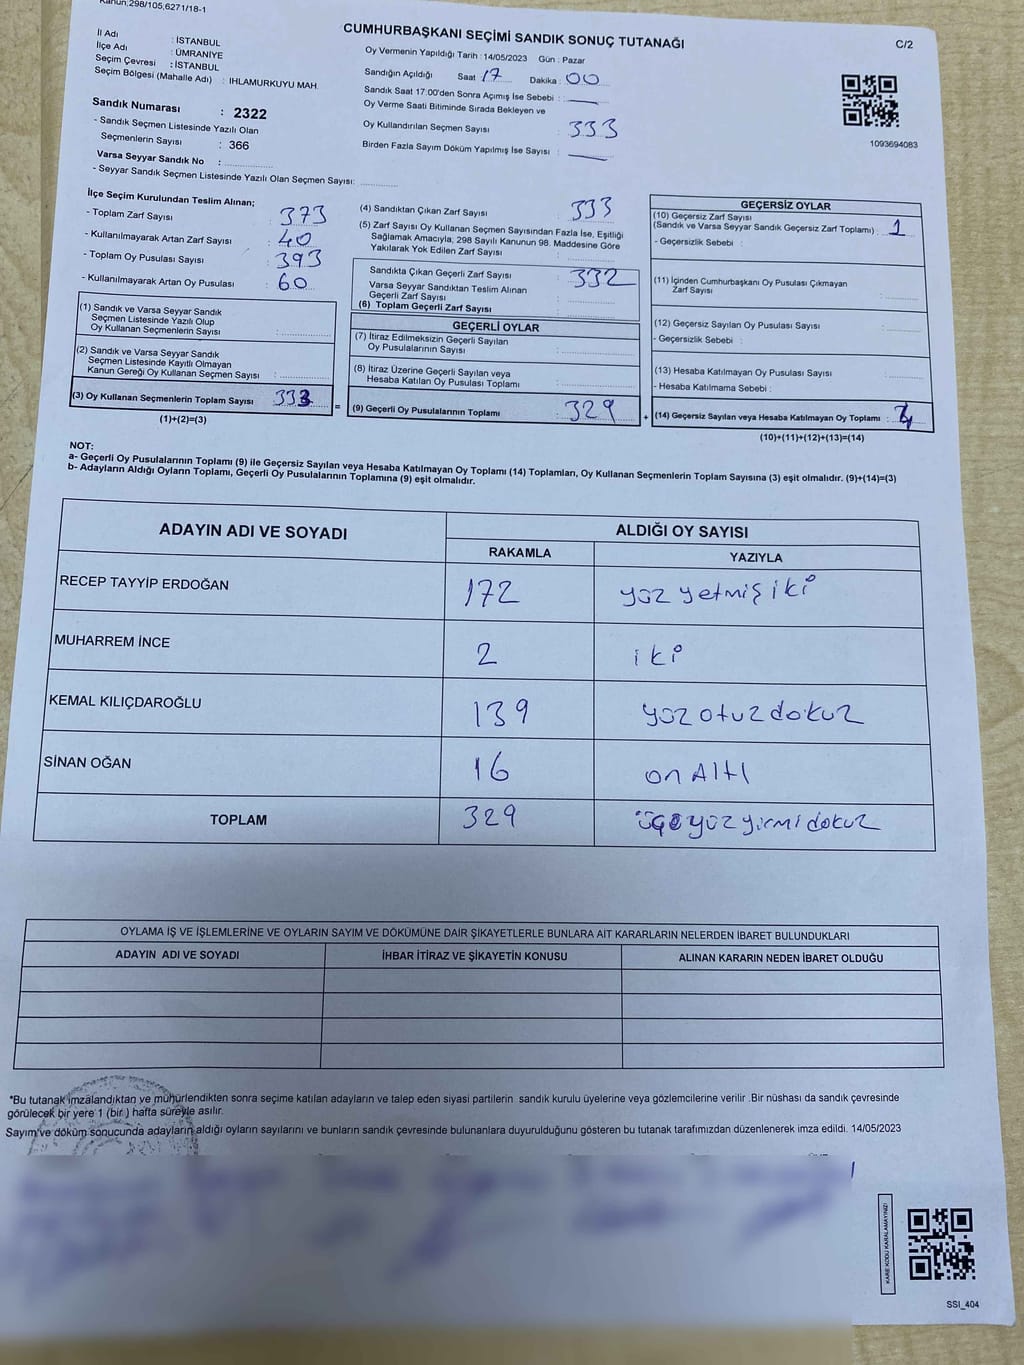 Kanun;298/105,6271/18-1
CUMHURBAŞKANI SEÇİMİ SANDIK SONUÇ TUTANAĞI
C/2
İl Adı : İSTANBUL
İlçe Adı : ÜMRANİYE
Seçim Çevresi : İSTANBUL
Seçim Bölgesi (Mahalle Adı) : IHLAMURKUYU MAH.
Oy Vermenin Yapıldığı Tarih : 14/05/2023 Gün : Pazar
Sandığın Açıldığı Saat 17 Dakika : 00
Sandık Saat 17:00'den Sonra Açımış İse Sebebi :
Oy Verme Saati Bitiminde Sırada Bekleyen ve
Oy Kullandırılan Seçmen Sayısı : 333
Birden Fazla Sayım Döküm Yapılmış İse Sayısı :
1093694083
Sandık Numarası : 2322
- Sandık Seçmen Listesinde Yazılı Olan
Seçmenlerin Sayısı : 366
Varsa Seyyar Sandık No :
- Seyyar Sandık Seçmen Listesinde Yazılı Olan Seçmen Sayısı:
İlçe Seçim Kurulundan Teslim Alınan;
- Toplam Zarf Sayısı : 373
- Kullanılmayarak Artan Zarf Sayısı : 40
- Toplam Oy Pusulası Sayısı : 393
- Kullanılmayarak Artan Oy Pusulası : 60
(1) Sandık ve Varsa Seyyar Sandık
Seçmen Listesinde Yazılı Olup
Oy Kullanan Seçmenlerin Sayısı :
(2) Sandık ve Varsa Seyyar Sandık
Seçmen Listesinde Kayıtlı Olmayan
Kanun Gereği Oy Kullanan Seçmen Sayısı :
(3) Oy Kullanan Seçmenlerin Toplam Sayısı : 333
(1)+(2)=(3)
(4) Sandıktan Çıkan Zarf Sayısı : 333
(5) Zarf Sayısı Oy Kullanan Seçmen Sayısından Fazla İse, Eşitliği
Sağlamak Amacıyla, 298 Sayılı Kanunun 98. Maddesine Göre
Yakılarak Yok Edilen Zarf Sayısı :
Sandıkta Çıkan Geçerli Zarf Sayısı : 332
Varsa Seyyar Sandıktan Teslim Alınan
Geçerli Zarf Sayısı :
(6) Toplam Geçerli Zarf Sayısı :
GEÇERLİ OYLAR
(7) İtiraz Edilmeksizin Geçerli Sayılan
Oy Pusulalarının Sayısı :
(8) İtiraz Üzerine Geçerli Sayılan veya
Hesaba Katılan Oy Pusulası Toplamı :
= (9) Geçerli Oy Pusulalarının Toplamı : 329
GEÇERSİZ OYLAR
(10) Geçersiz Zarf Sayısı
(Sandık ve Varsa Seyyar Sandık Geçersiz Zarf Toplamı) : 1
- Geçersizlik Sebebi :
(11) İçinden Cumhurbaşkanı Oy Pusulası Çıkmayan
Zarf Sayısı :
(12) Geçersiz Sayılan Oy Pusulası Sayısı :
- Geçersizlik Sebebi :
(13) Hesaba Katılmayan Oy Pusulası Sayısı :
- Hesaba Katılmama Sebebi :
+ (14) Geçersiz Sayılan veya Hesaba Katılmayan Oy Toplamı : 4
(10)+(11)+(12)+(13)=(14)
NOT:
a- Geçerli Oy Pusulalarının Toplamı (9) ile Geçersiz Sayılan veya Hesaba Katılmayan Oy Toplamı (14) Toplamları, Oy Kullanan Seçmenlerin Toplam Sayısına (3) eşit olmalıdır. (9)+(14)=(3)
b- Adayların Aldığı Oyların Toplamı, Geçerli Oy Pusulalarının Toplamına (9) eşit olmalıdır.
ADAYIN ADI VE SOYADI ALDIĞI OY SAYISI
RAKAMLA YAZIYLA
RECEP TAYYİP ERDOĞAN 172 yüz yetmiş iki
MUHARREM İNCE 2 iki
KEMAL KILIÇDAROĞLU 139 yüz otuz dokuz
SİNAN OĞAN 16 on Altı
TOPLAM 329 üç yüz yirmi dokuz
OYLAMA İŞ VE İŞLEMLERİNE VE OYLARIN SAYIM VE DÖKÜMÜNE DAİR ŞİKAYETLERLE BUNLARA AİT KARARLARIN NELERDEN İBARET BULUNDUKLARI
ADAYIN ADI VE SOYADI İHBAR İTİRAZ VE ŞİKAYETİN KONUSU ALINAN KARARIN NEDEN İBARET OLDUĞU
*Bu tutanak imzalandıktan ve mühürlendikten sonra seçime katılan adayların ve talep eden siyasi partilerin sandık kurulu üyelerine veya gözlemcilerine verilir .Bir nüshası da sandık çevresinde
görülecek bir yere 1 (bir ) hafta süreyle asılır.
Sayım ve döküm sonucunda adayların aldığı oyların sayılarını ve bunların sandık çevresinde bulunanlara duyurulduğunu gösteren bu tutanak tarafımızdan düzenlenerek imza edildi. 14/05/2023
KARE KODU KARALAMAYINIZ!
SSI_404